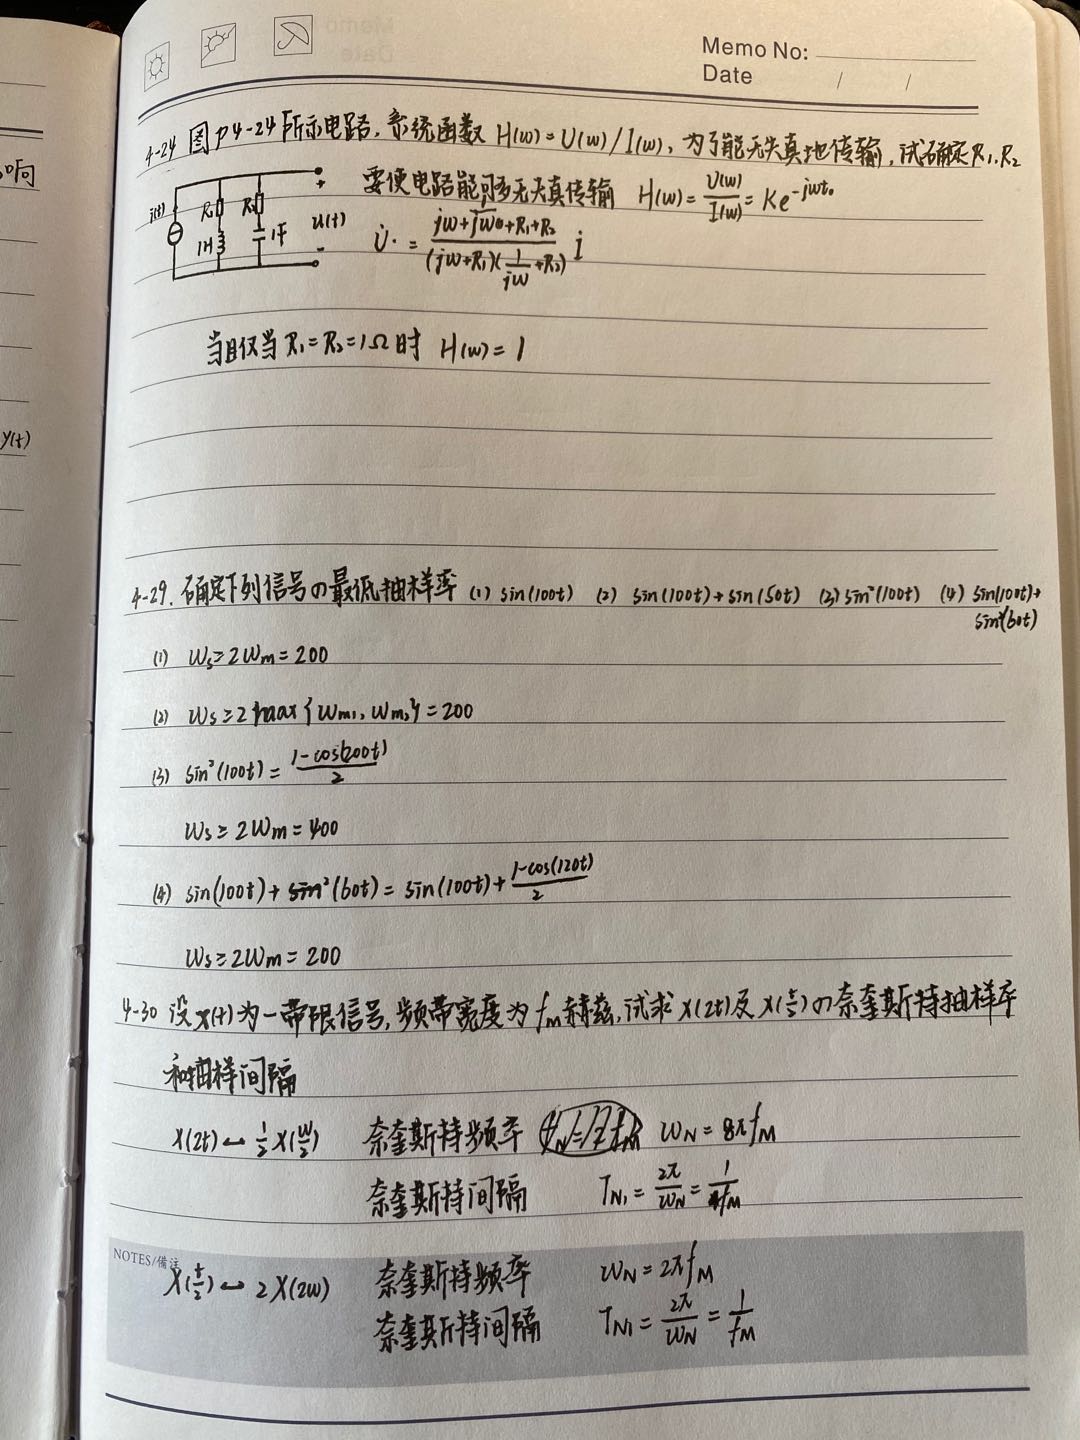 Memo No:
Date / /
4-24 图P4-24所示电路，系统函数 H(w)=U(w)/I(w)，为了能无失真地传输，试确定R₁、R₂
要使电路能够无失真传输 H(w)=U(w)/I(w)=Ke^{-jwt₀}
i(t) R₁ R₂ 1H 1F + u(t) -
当且仅当 R₁=R₂=1Ω时 H(w)=1
4-29. 确定下列信号の最低抽样率 (1) sin(100t) (2) sin(100t)+sin(50t) (3) sin²(100t) (4) sin(100t)+
sin²(60t)
(1) Ws≥2Wm=200
(2) Ws≥2max{Wm₁, Wm₂}=200
(3) sin²(100t)=(1-cos(200t))/2
Ws≥2Wm=400
(4) sin(100t)+sin²(60t)=sin(100t)+(1-cos(120t))/2
Ws≥2Wm=200
4-30 设X(t)为一带限信号，频带宽度为fm赫兹，试求X(2t)及X(t/2)の奈奎斯特抽样率
和抽样间隔
X(2t)↔1/2 X(w/2) 奈奎斯特频率 WN=8πfM
奈奎斯特间隔 TN₁=2π/WN=1/4fM
NOTES/備注
X(t/2)↔2X(2w) 奈奎斯特频率 WN=2πfM
奈奎斯特间隔 TN₁=2π/WN=1/fM
响
y(t)